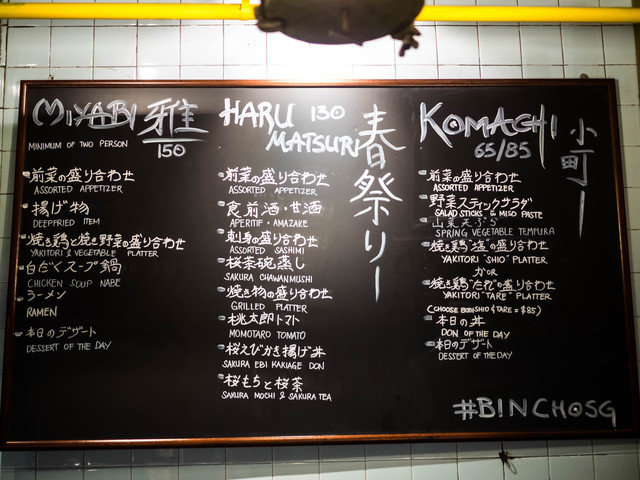 MIYABI 雅
150
MINIMUM OF TWO PERSON
前菜の盛り合わせ
ASSORTED APPETIZER
揚げ物
DEEPFRIED ITEM
焼き鶏と焼き野菜の盛り合わせ
YAKITORI & VEGETABLE PLATTER
白だくスープ鍋
CHICKEN SOUP NABE
ラーメン
RAMEN
本日のデザート
DESSERT OF THE DAY
HARU 130
MATSURI
春祭りー
前菜の盛り合わせ
ASSORTED APPETIZER
食前酒・甘酒
APERITIF・AMAZAKE
刺身の盛り合わせ
ASSORTED SASHIMI
桜茶碗蒸し
SAKURA CHAWANMUSHI
焼き物の盛り合わせ
GRILLED PLATTER
桃太郎トマト
MOMOTARO TOMATO
桜えびかき揚げ丼
SAKURA EBI KAKIAGE DON
桜もちと桜茶
SAKURA MOCHI & SAKURA TEA
KOMACHI
65/85
小町ー
前菜の盛り合わせ
ASSORTED APPETIZER
野菜スティックサラダ
SALAD STICKS & MISO PASTE
山菜天ぷら
SPRING VEGETABLE TEMPURA
焼き鶏"塩"の盛り合わせ
YAKITORI "SHIO" PLATTER
か OR
焼き鶏"たれ"の盛り合わせ
YAKITORI "TARE" PLATTER
(CHOOSE BOTH SHIO & TARE = $85)
本日の丼
DON OF THE DAY
本日のデザート
DESSERT OF THE DAY
#BINCHOSG